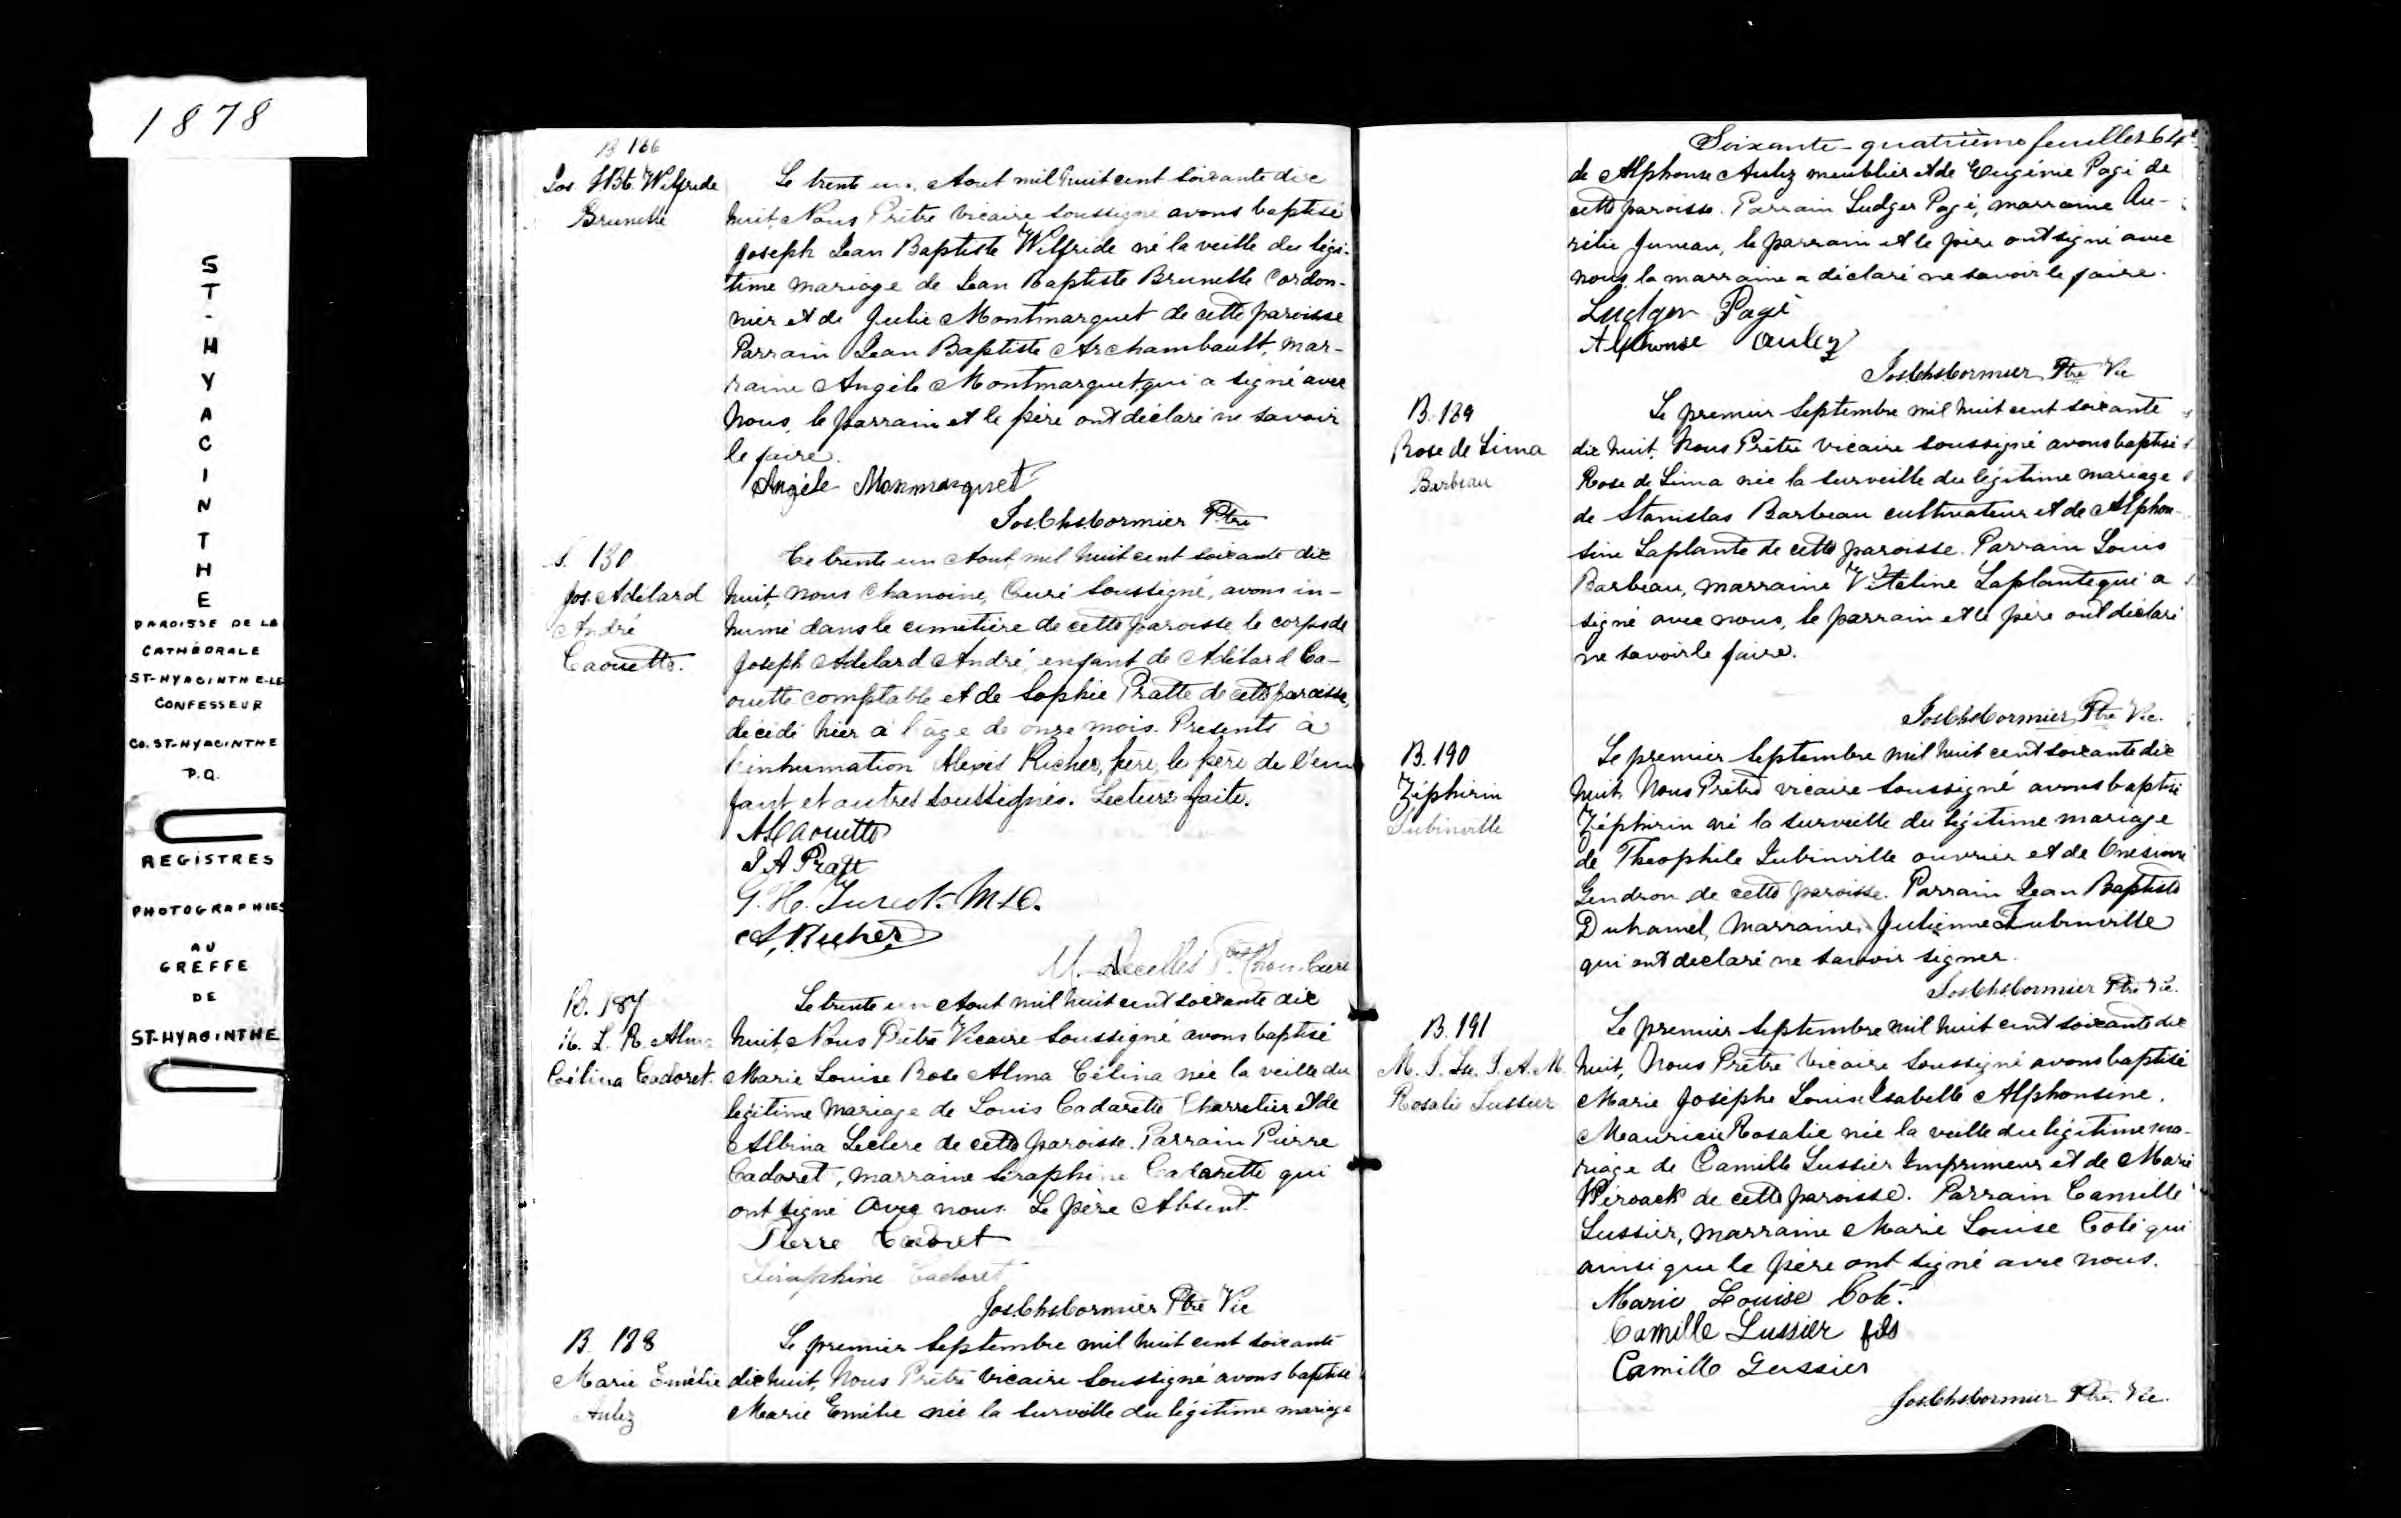 1878
ST-HYACINTHE
PAROISSE DE LA
CATHÉDRALE
ST-HYACINTHE-LE
CONFESSEUR
CO. ST-HYACINTHE
P.Q.
REGISTRES
PHOTOGRAPHIES
AU
GREFFE
DE
ST-HYACINTHE
B 186
Jos. J Bte. Wilfride
Brunelle
Le trente un, Aout mil huit cent soixante dix
huit, Nous Prêtre vicaire soussigné avons baptisé
Joseph Jean Baptiste Wilfride né la veille du légi-
time mariage de Jean Baptiste Brunelle Cordon-
nier et de Julie Montmarquet de cette paroisse
Parrain Jean Baptiste Archambault, mar-
raine Angèle Montmarquet, qui a signé avec
nous, le parrain et le père ont déclaré ne savoir
le faire.
Angèle Monmarquet
Jos Chs Cormier Ptre
S. 130
Jos. Adélard
André
Caouette.
Le trente un Aout mil huit cent soixante dix
huit, nous Chanoine, Curé soussigné, avons in-
humé dans le cimetière de cette paroisse, le corps de
Joseph Adelard André, enfant de Adélard Ca-
ouette comptable et de Sophie Pratte de cette paroisse,
décédé hier à l'âge de onze mois. Presents à
l'inhumation Alexis Richer, père, le père de l'en
fant et autres soussignés. Lecture faite.
A Caouette
J A Pratt
G. H. M.D.
A. Richer
M. Decelles Ptre Chan. Curé
B. 187
M. L. R. Alma
Célina Cadoret.
Le trente un Aout mil huit cent soixante dix
huit, Nous Prêtre Vicaire soussigné avons baptisé
Marie Louise Rose Alma Célina née la veille du
légitime mariage de Louis Cadarette Charretier et de
Albina Leclerc de cette paroisse. Parrain Pierre
Cadoret, marraine Séraphine Cadarette qui
ont signé avec nous. Le père Absent.
Pierre Cadoret
Séraphine Cadoret
Jos Chs Cormier Ptre Vic
B. 188
Marie Emélie
Aulez
Le premier Septembre mil huit cent soixante
dix huit, Nous Prêtre Vicaire soussigné avons baptisé
Marie Emélie née la surveille du légitime mariage
Soixante-quatrième feuillet 64e
de Alphonse Aulez meublier et de Eugénie Pagé de
cette paroisse. Parrain Ludger Pagé, marraine Au-
rélie Juneau, le parrain et le père ont signé avec
nous, la marraine a déclaré ne savoir le faire.
Ludger Pagé
Alphonse Aulez
Jos Chs Cormier Ptre Vic
B. 189
Rose de Lima
Barbeau
Le premier Septembre mil huit cent soixante
dix huit, Nous Prêtre vicaire soussigné avons baptisé
Rose de Lima née la surveille du légitime mariage
de Stanislas Barbeau cultivateur et de Alphon-
sine Laplante de cette paroisse. Parrain Louis
Barbeau, marraine Vitaline Laplante qui a
signé avec nous, le parrain et le père ont déclaré
ne savoir le faire.
Jos Chs Cormier Ptre Vic.
B. 190
Zéphirin
Lubinville
Le premier Septembre mil huit cent soixante dix
huit, Nous Prêtre vicaire soussigné avons baptisé
Zéphirin né la surveille du légitime mariage
de Theophile Lubinville ouvrier et de Onésime
Gendron de cette paroisse. Parrain Jean Baptiste
Duhamel, marraine, Julienne Lubinville
qui ont declaré ne savoir signer.
Jos Chs Cormier Ptre Vic.
B. 191
M. J. Lse. I. A. M.
Rosalie Lussier
Le premier Septembre mil huit cent soixante dix
huit, Nous Prêtre Vicaire soussigné avons baptisé
Marie Josèphe Louise Isabelle Alphonsine
Mauricie Rosalie née la veille du légitime ma-
riage de Camille Lussier Imprimeur et de Marie
Kéroack de cette paroisse. Parrain Camille
Lussier, marraine Marie Louise Coté qui
ainsi que le père ont signé avec nous.
Marie Louise Coté.
Camille Lussier fils
Camille Lussier
Jos Chs Cormier Ptre. Vic.